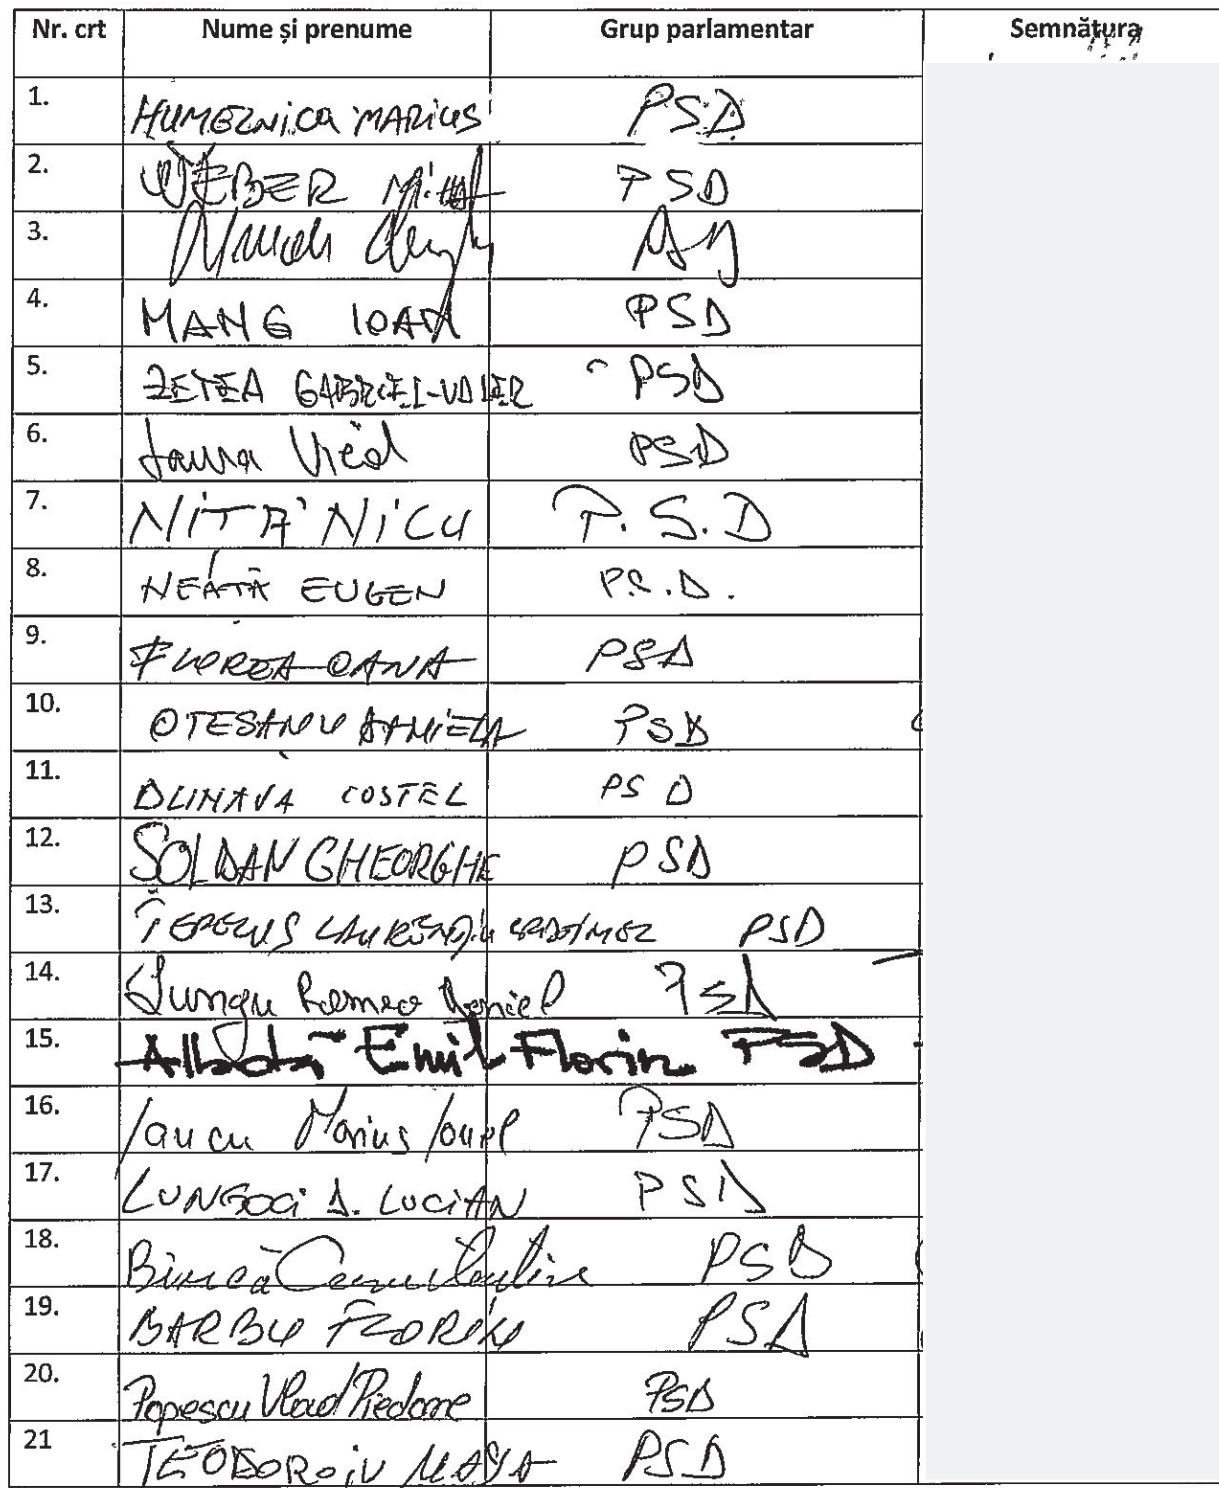 Nr. crt Nume și prenume Grup parlamentar Semnătura
1. HUMELNICA MARIUS PSD
2. WEBER PSD
3.
4. MANG IOAN PSD
5. ZETEA GABRIEL-VALER PSD
6. Laura Vicol PSD
7. NIȚĂ NICU P.S.D
8. NEAȚĂ EUGEN P.S.D.
9. FLOREA OANA PSD
10. OTESANU DANIELA PSD
11. DUNAVĂ COSTEL PSD
12. SOLDAN GHEORGHE PSD
13. PSD
14. Lungu Romeo Daniel PSD
15. Albotă Emil Florin PSD
16. Iancu Marius Ionel PSD
17. LUNGOCI D. LUCIAN PSD
18. Bîrcă Constantin PSD
19. BARBU FLORIN PSD
20. Popescu Vlad Piedone PSD
21 TEODOROIU MAYA PSD